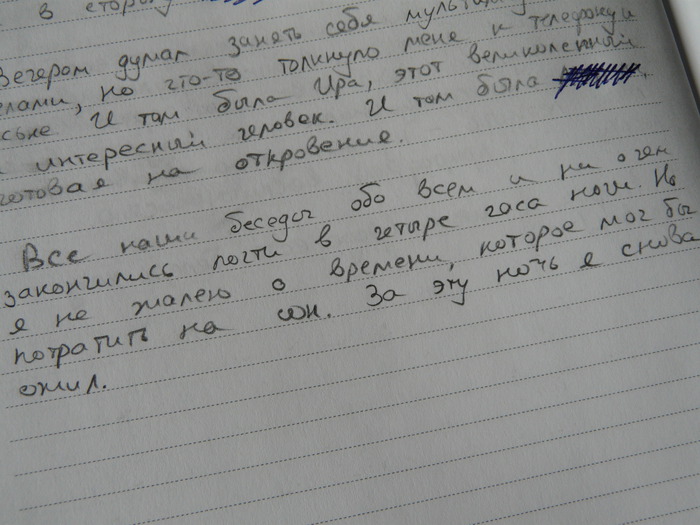 в сторону
Вечером думал занять себя мульт
лами, но что-то толкнуло мене к телефону и
ське И там была Ира, этот великолепный
и интересный человек. И там была
готовая на откровение.
Все наши беседы обо всем и ни о чем
закончились почти в четыре часа ночи. Но
я не жалею о времени, которое мог бы
потратить на сон. За эту ночь я снова
ожил.